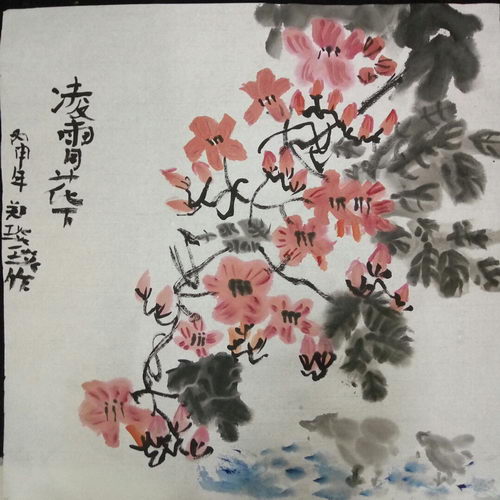 凌霄花下
丙申年
作